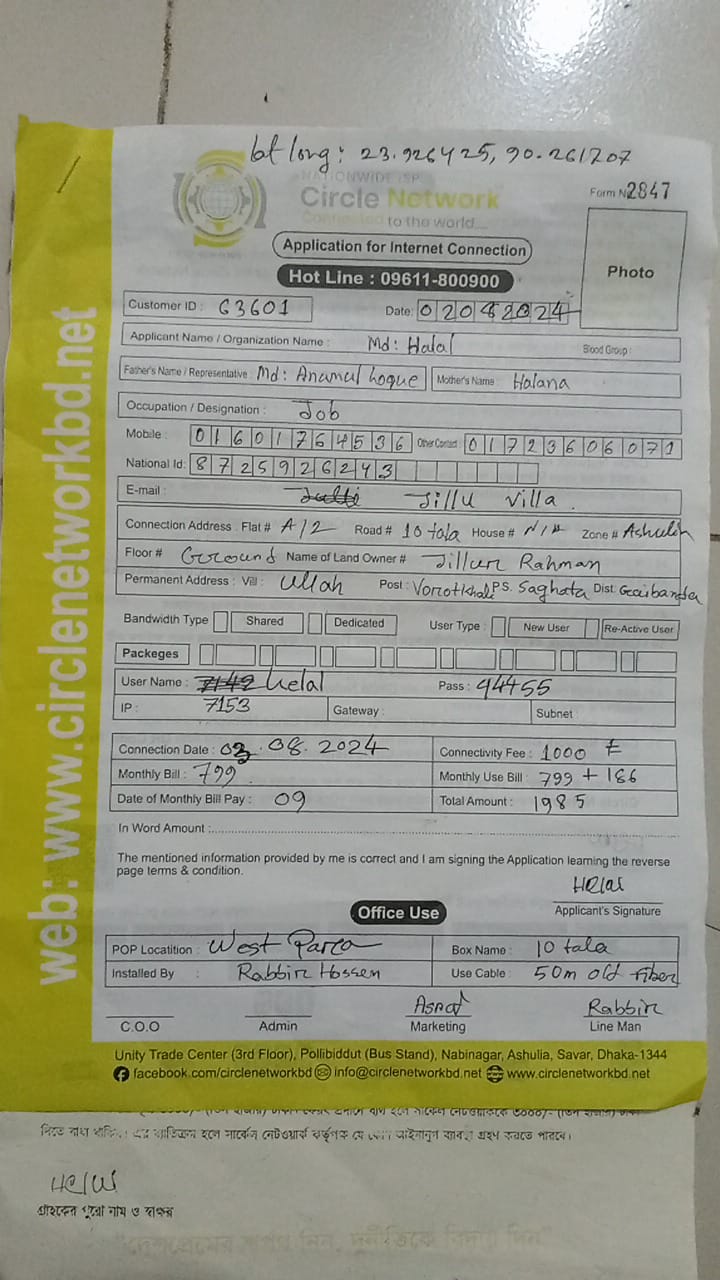 lat long: 23.926425, 90.261207
NATIONWIDE ISP
Circle Network
Connected to the world...
Form No 2847
Application for Internet Connection
Photo
Hot Line : 09611-800900
Customer ID : 63601 Date: 02082024
Applicant Name / Organization Name : Md: Halal Blood Group :
Father's Name / Representative : Md: Anamul hoque Mother's Name Halana
Occupation / Designation : Job
Mobile: 01601764536 Other Contact 01723606071
National Id: 8725926243
E-mail : Jillu Villa
Connection Address : Flat # A/2 Road # 10 tala House # N/A Zone # Ashulia
Floor # Ground Name of Land Owner # Jillur Rahman
Permanent Address : Vill : Ullah Post : PS. Saghata Dist. Gaibandha
Bandwidth Type Shared Dedicated User Type : New User Re-Active User
Packeges
User Name : 7142 helal Pass : 94455
IP : 7153 Gateway : Subnet
Connection Date : 03.08.2024 Connectivity Fee : 1000 ৳
Monthly Bill : 799 Monthly Use Bill : 799 + 186
Date of Monthly Bill Pay : 09 Total Amount : 1985
In Word Amount :
The mentioned information provided by me is correct and I am signing the Application learning the reverse
page terms & condition.
Helal
Applicant's Signature
Office Use
POP Locatition : West Parca Box Name : 10 tala
Installed By : Rabbir Hossen Use Cable : 50m old Fiber
Rabbir
C.O.O Admin Marketing Line Man
Unity Trade Center (3rd Floor), Pollibiddut (Bus Stand), Nabinagar, Ashulia, Savar, Dhaka-1344
facebook.com/circlenetworkbd info@circlenetworkbd.net www.circlenetworkbd.net
web: www.circlenetworkbd.net
দিতে বাধ্য থাকিব। এর ব্যতিক্রম হলে সার্কেল নেটওয়ার্ক কর্তৃপক্ষ যে কোন আইনানুগ ব্যবস্থা গ্রহণ করতে পারবে।
Helal
গ্রাহকের পুরো নাম ও স্বাক্ষর
"দেশপ্রেমের শপথ নিন, দুর্নীতিকে বিদায় দিন"